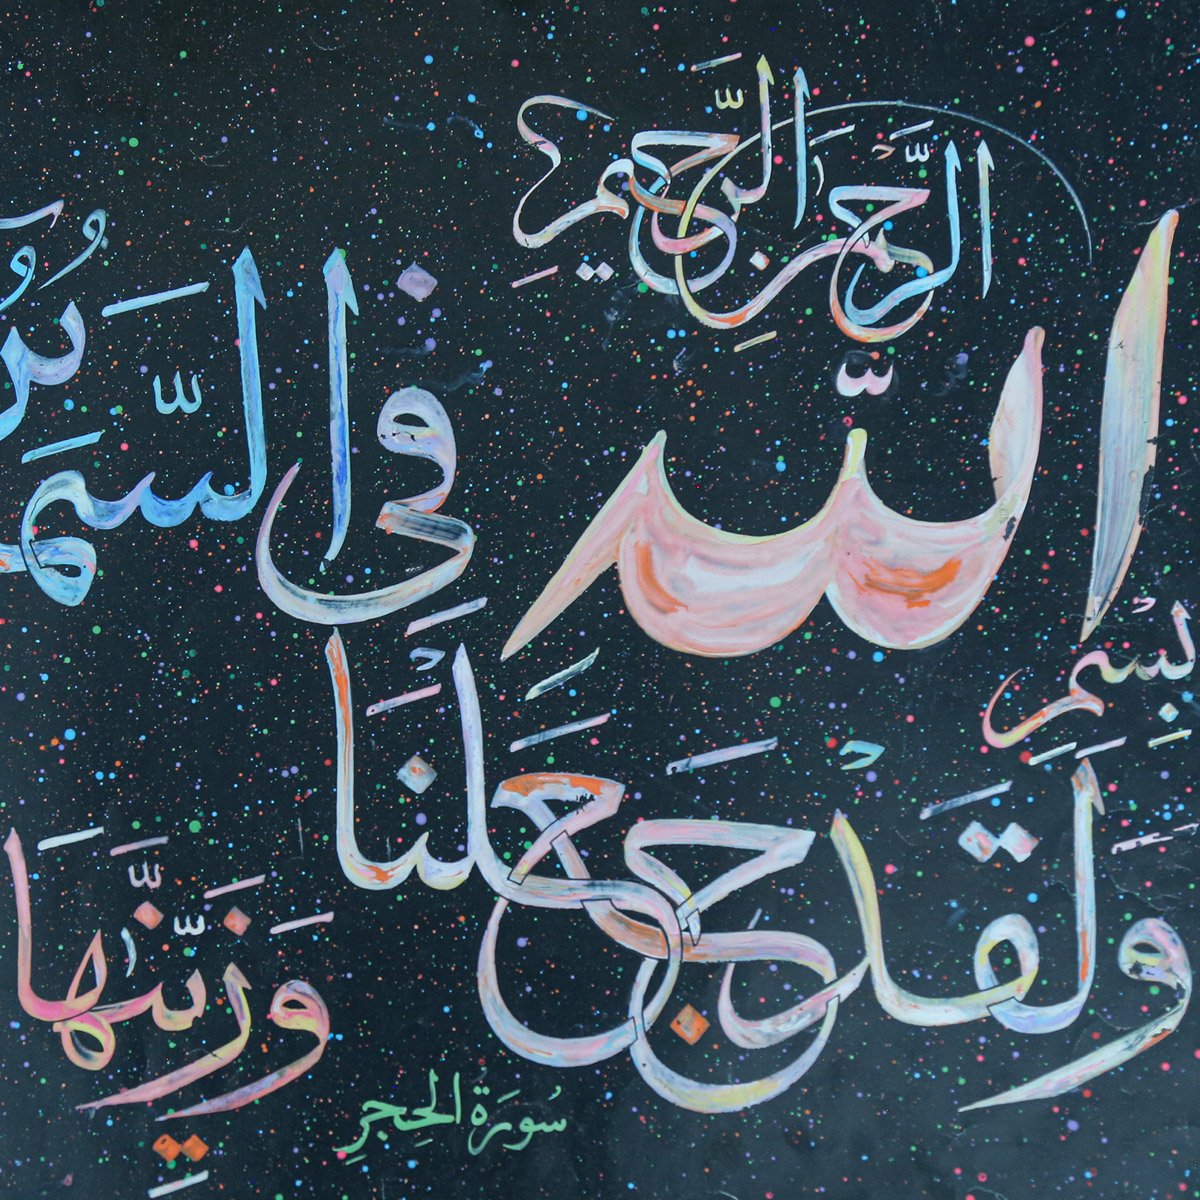 بِسْمِ اللّه الرَّحْمٰنِ الرَّحِيمِ
وَلَقَدْ جَعَلْنَا فِي السَّمَا بُرُو
وَزَيَّنّٰهَا
سُورَةُ الحِجرِ